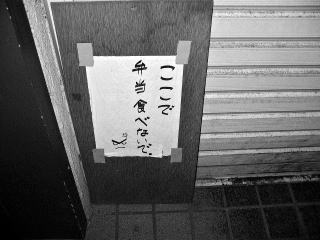 ここで
弁当食べないで。